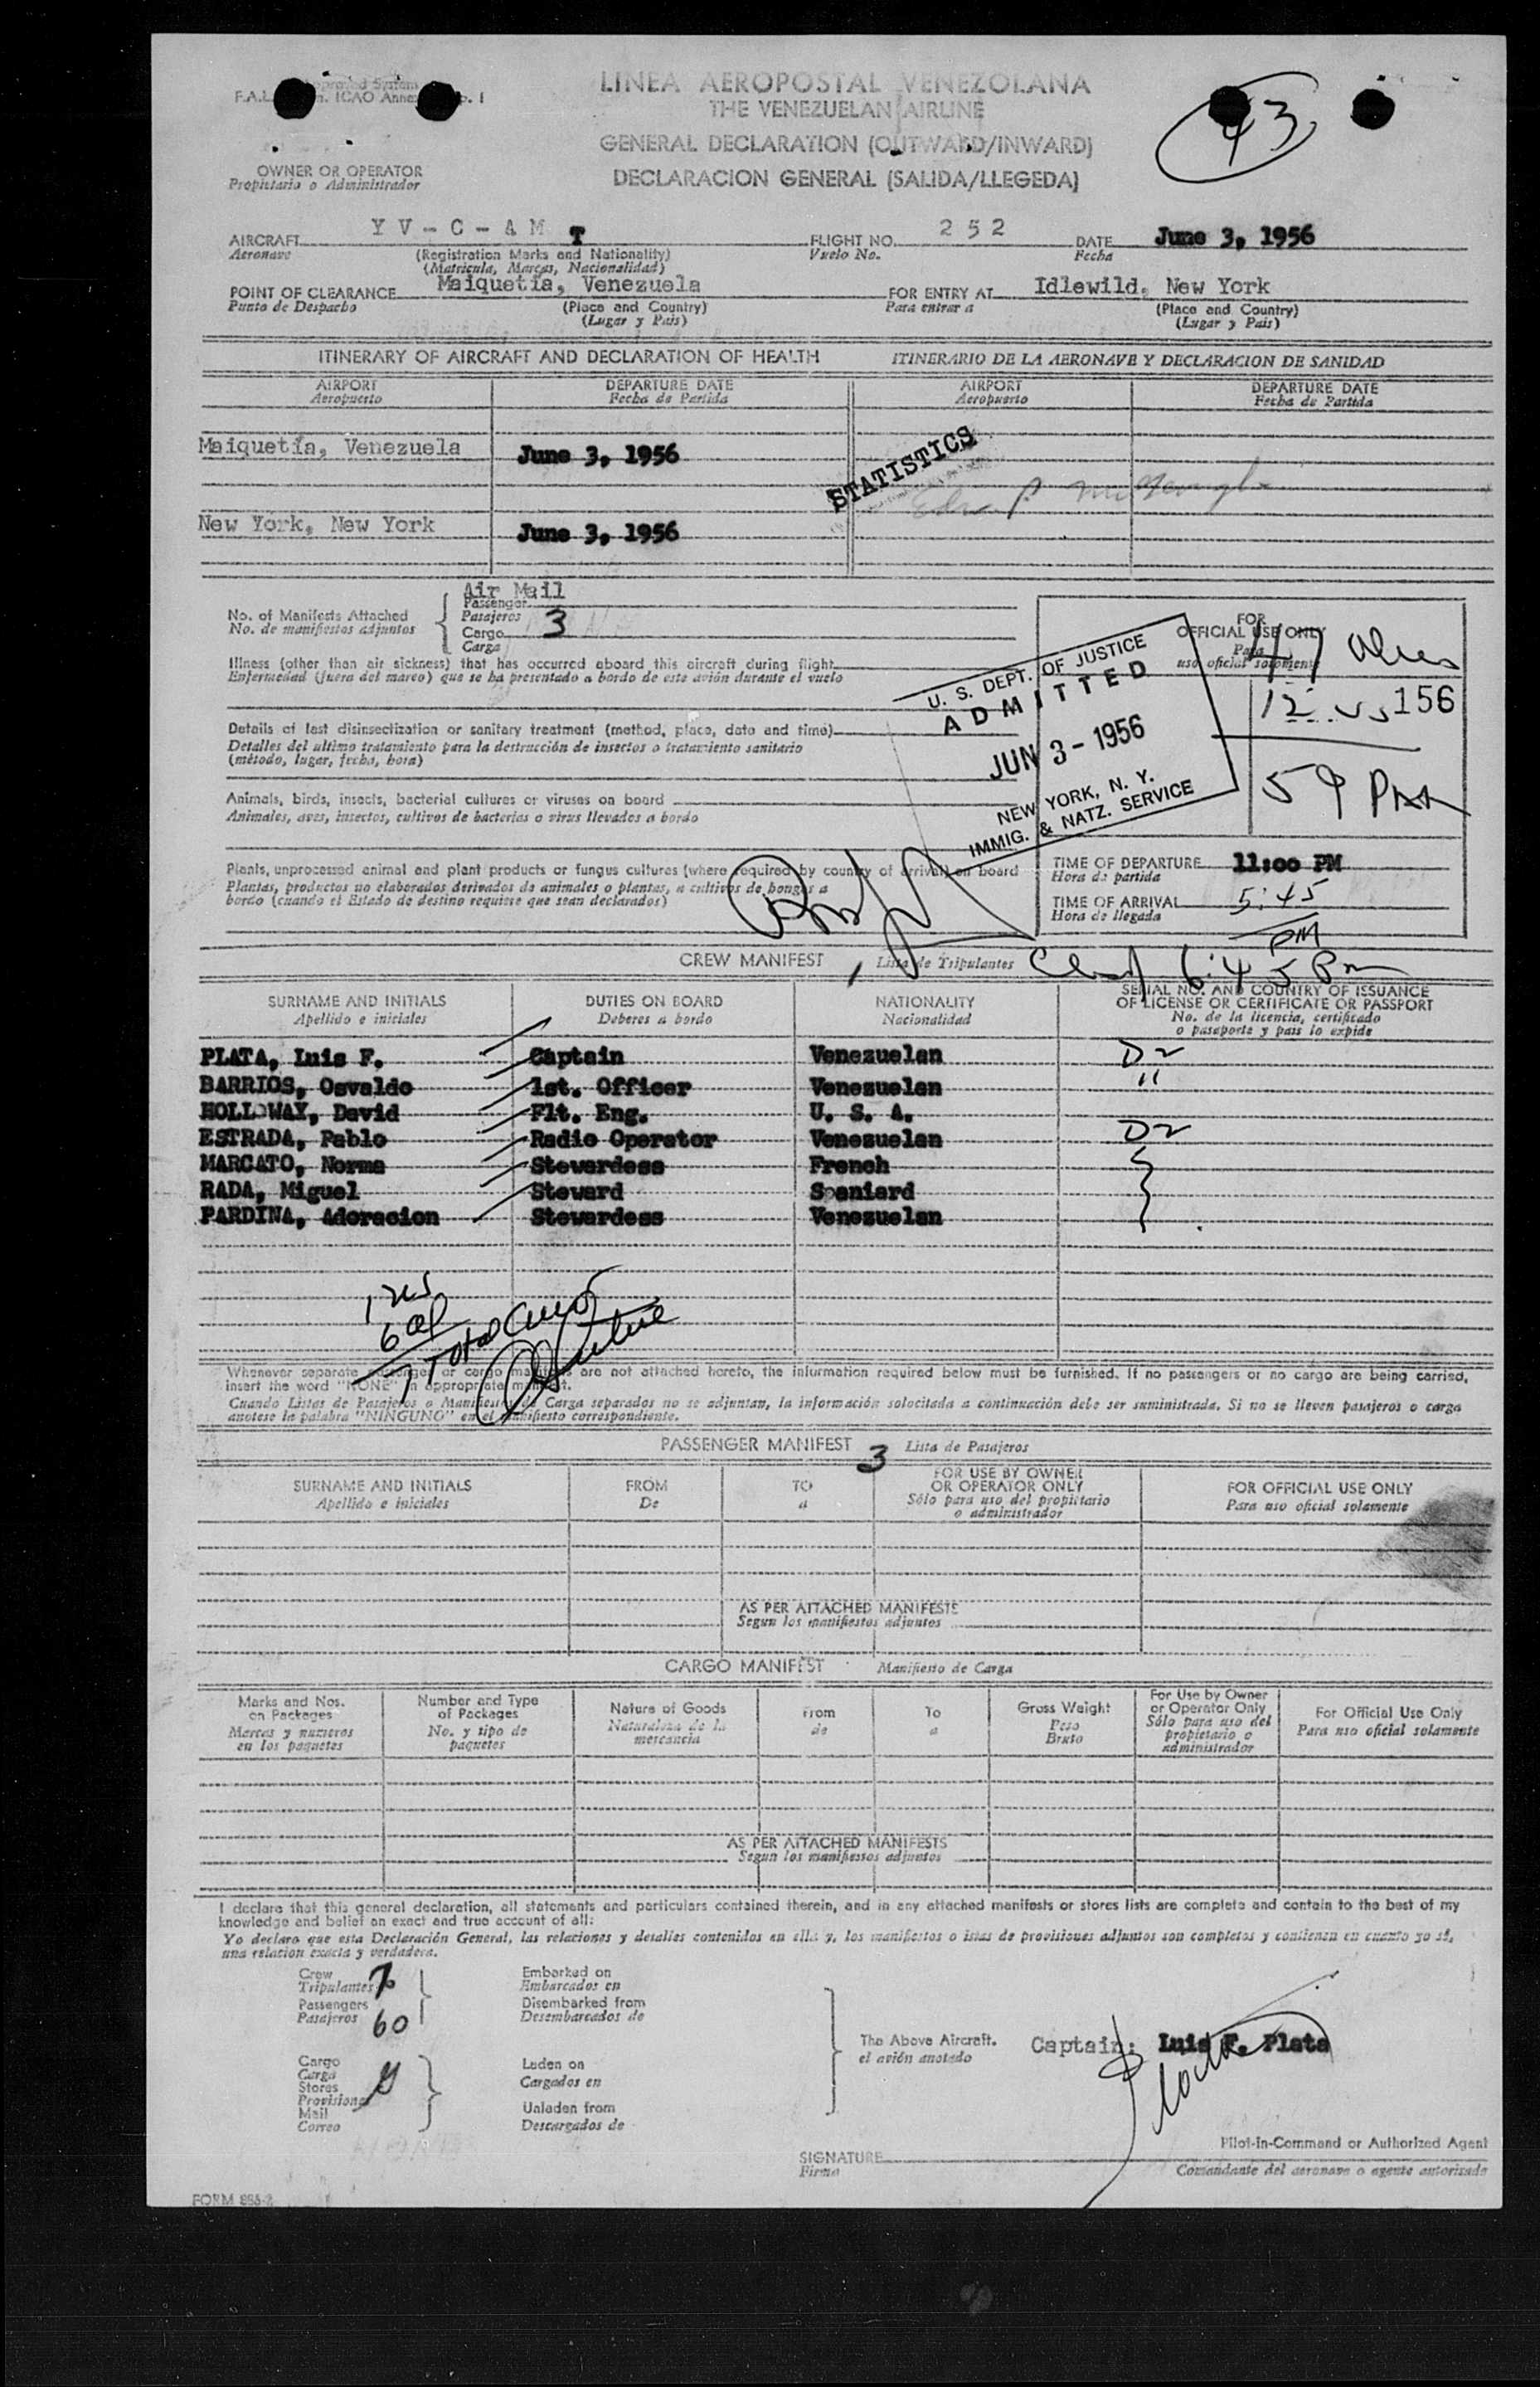 LINEA AEROPOSTAL VENEZOLANA
THE VENEZUELAN AIRLINE
GENERAL DECLARATION (OUTWARD/INWARD)
DECLARACION GENERAL (SALIDA/LLEGEDA)
43
OWNER OR OPERATOR
Propietario o Administrador
AIRCRAFT Y V - C - A M T FLIGHT NO. 252 DATE June 3, 1956
Aeronave (Registration Marks and Nationality) Vuelo No. Fecha
(Matricula, Marcas, Nacionalidad)
POINT OF CLEARANCE Maiquetia, Venezuela FOR ENTRY AT Idlewild, New York
Punto de Despacho (Place and Country) Para entrar a (Place and Country)
(Lugar y Pais) (Lugar y Pais)
ITINERARY OF AIRCRAFT AND DECLARATION OF HEALTH ITINERARIO DE LA AERONAVE Y DECLARACION DE SANIDAD
AIRPORT DEPARTURE DATE AIRPORT DEPARTURE DATE
Aeropuerto Fecha de Partida Aeropuerto Fecha de Partida
Maiquetia, Venezuela June 3, 1956
STATISTICS
New York, New York June 3, 1956
Air Mail
No. of Manifests Attached Passenger
No. de manifiestos adjuntos Pasajeros 3
Cargo
Carga
FOR
OFFICIAL USE ONLY
Para
uso oficial solamente
47
12 156
59
Illness (other than air sickness) that has occurred aboard this aircraft during flight
Enfermedad (fuera del mareo) que se ha presentado a bordo de este avión durante el vuelo
U. S. DEPT. OF JUSTICE
ADMITTED
JUN 3 - 1956
NEW YORK, N. Y.
IMMIG. & NATZ. SERVICE
Details of last disinsectization or sanitary treatment (method, place, date and time)
Detalles del ultimo tratamiento para la destrucción de insectos o tratamiento sanitario
(método, lugar, fecha, hora)
Animals, birds, insects, bacterial cultures or viruses on board
Animales, aves, insectos, cultivos de bacterias o virus llevados a bordo
Plants, unprocessed animal and plant products or fungus cultures (where required by country of arrival) on board
Plantas, productos no elaborados derivados de animales o plantas, o cultivos de hongos a
bordo (cuando el Estado de destino requiere que sean declarados)
TIME OF DEPARTURE 11:00 PM
Hora de partida
TIME OF ARRIVAL 5:45
Hora de llegada PM
CREW MANIFEST Lista de Tripulantes 6:45 Pm
SURNAME AND INITIALS DUTIES ON BOARD NATIONALITY SERIAL NO. AND COUNTRY OF ISSUANCE
Apellido e iniciales Deberes a bordo Nacionalidad OF LICENSE OR CERTIFICATE OR PASSPORT
No. de la licencia, certificado
o pasaporte y pais lo expide
PLATA, Luis F. Captain Venezuelan D2
BARRIOS, Osvaldo 1st. Officer Venezuelan "
HOLLOWAY, David Flt. Eng. U. S. A.
ESTRADA, Pablo Radio Operator Venezuelan D2
MARCATO, Norma Stewardess French
RADA, Miguel Steward Spaniard
PARDINA, Adoracion Stewardess Venezuelan
6
7 Total Crew
Whenever separate passenger or cargo manifests are not attached hereto, the information required below must be furnished. If no passengers or no cargo are being carried,
insert the word "NONE" in appropriate manifest.
Cuando Listas de Pasajeros o Manifiestos de Carga separados no se adjuntan, la información solocitada a continuación debe ser suministrada. Si no se lleven pasajeros o carga
anotese la palabra "NINGUNO" en el manifiesto correspondiente.
PASSENGER MANIFEST 3 Lista de Pasajeros
SURNAME AND INITIALS FROM TO FOR USE BY OWNER FOR OFFICIAL USE ONLY
Apellido e iniciales De a OR OPERATOR ONLY Para uso oficial solamente
Sólo para uso del propietario
o administrador
AS PER ATTACHED MANIFESTS
Segun los manifiestos adjuntos
CARGO MANIFEST Manifiesto de Carga
Marks and Nos. Number and Type Nature of Goods From To Gross Weight For Use by Owner For Official Use Only
on Packages of Packages Naturaleza de la de a Peso or Operator Only Para uso oficial solamente
Marcas y numeros No. y tipo de mercancia Bruto Sólo para uso del
en los paquetes paquetes propietario o
administrador
AS PER ATTACHED MANIFESTS
Segun los manifiestos adjuntos
I declare that this general declaration, all statements and particulars contained therein, and in any attached manifests or stores lists are complete and contain to the best of my
knowledge and belief an exact and true account of all:
Yo declaro que esta Declaración General, las relaciones y detalles contenidos en ella y, los manifiestos o istas de provisiones adjuntos son completos y contienen en cuanto yo sé,
una relacion exacta y verdadera.
Crew 7 Embarked on
Tripulantes Embarcados en
Passengers 60 Disembarked from
Pasajeros Desembarcados de
The Above Aircraft. Captain: Luis F. Plata
el avión anotado
Cargo Laden on
Carga Cargados en
Stores
Provisiones
Mail Unladen from
Correo Descargados de
Pilot-in-Command or Authorized Agent
SIGNATURE
Firma Comandante del aeronave o agente autorizado
FORM